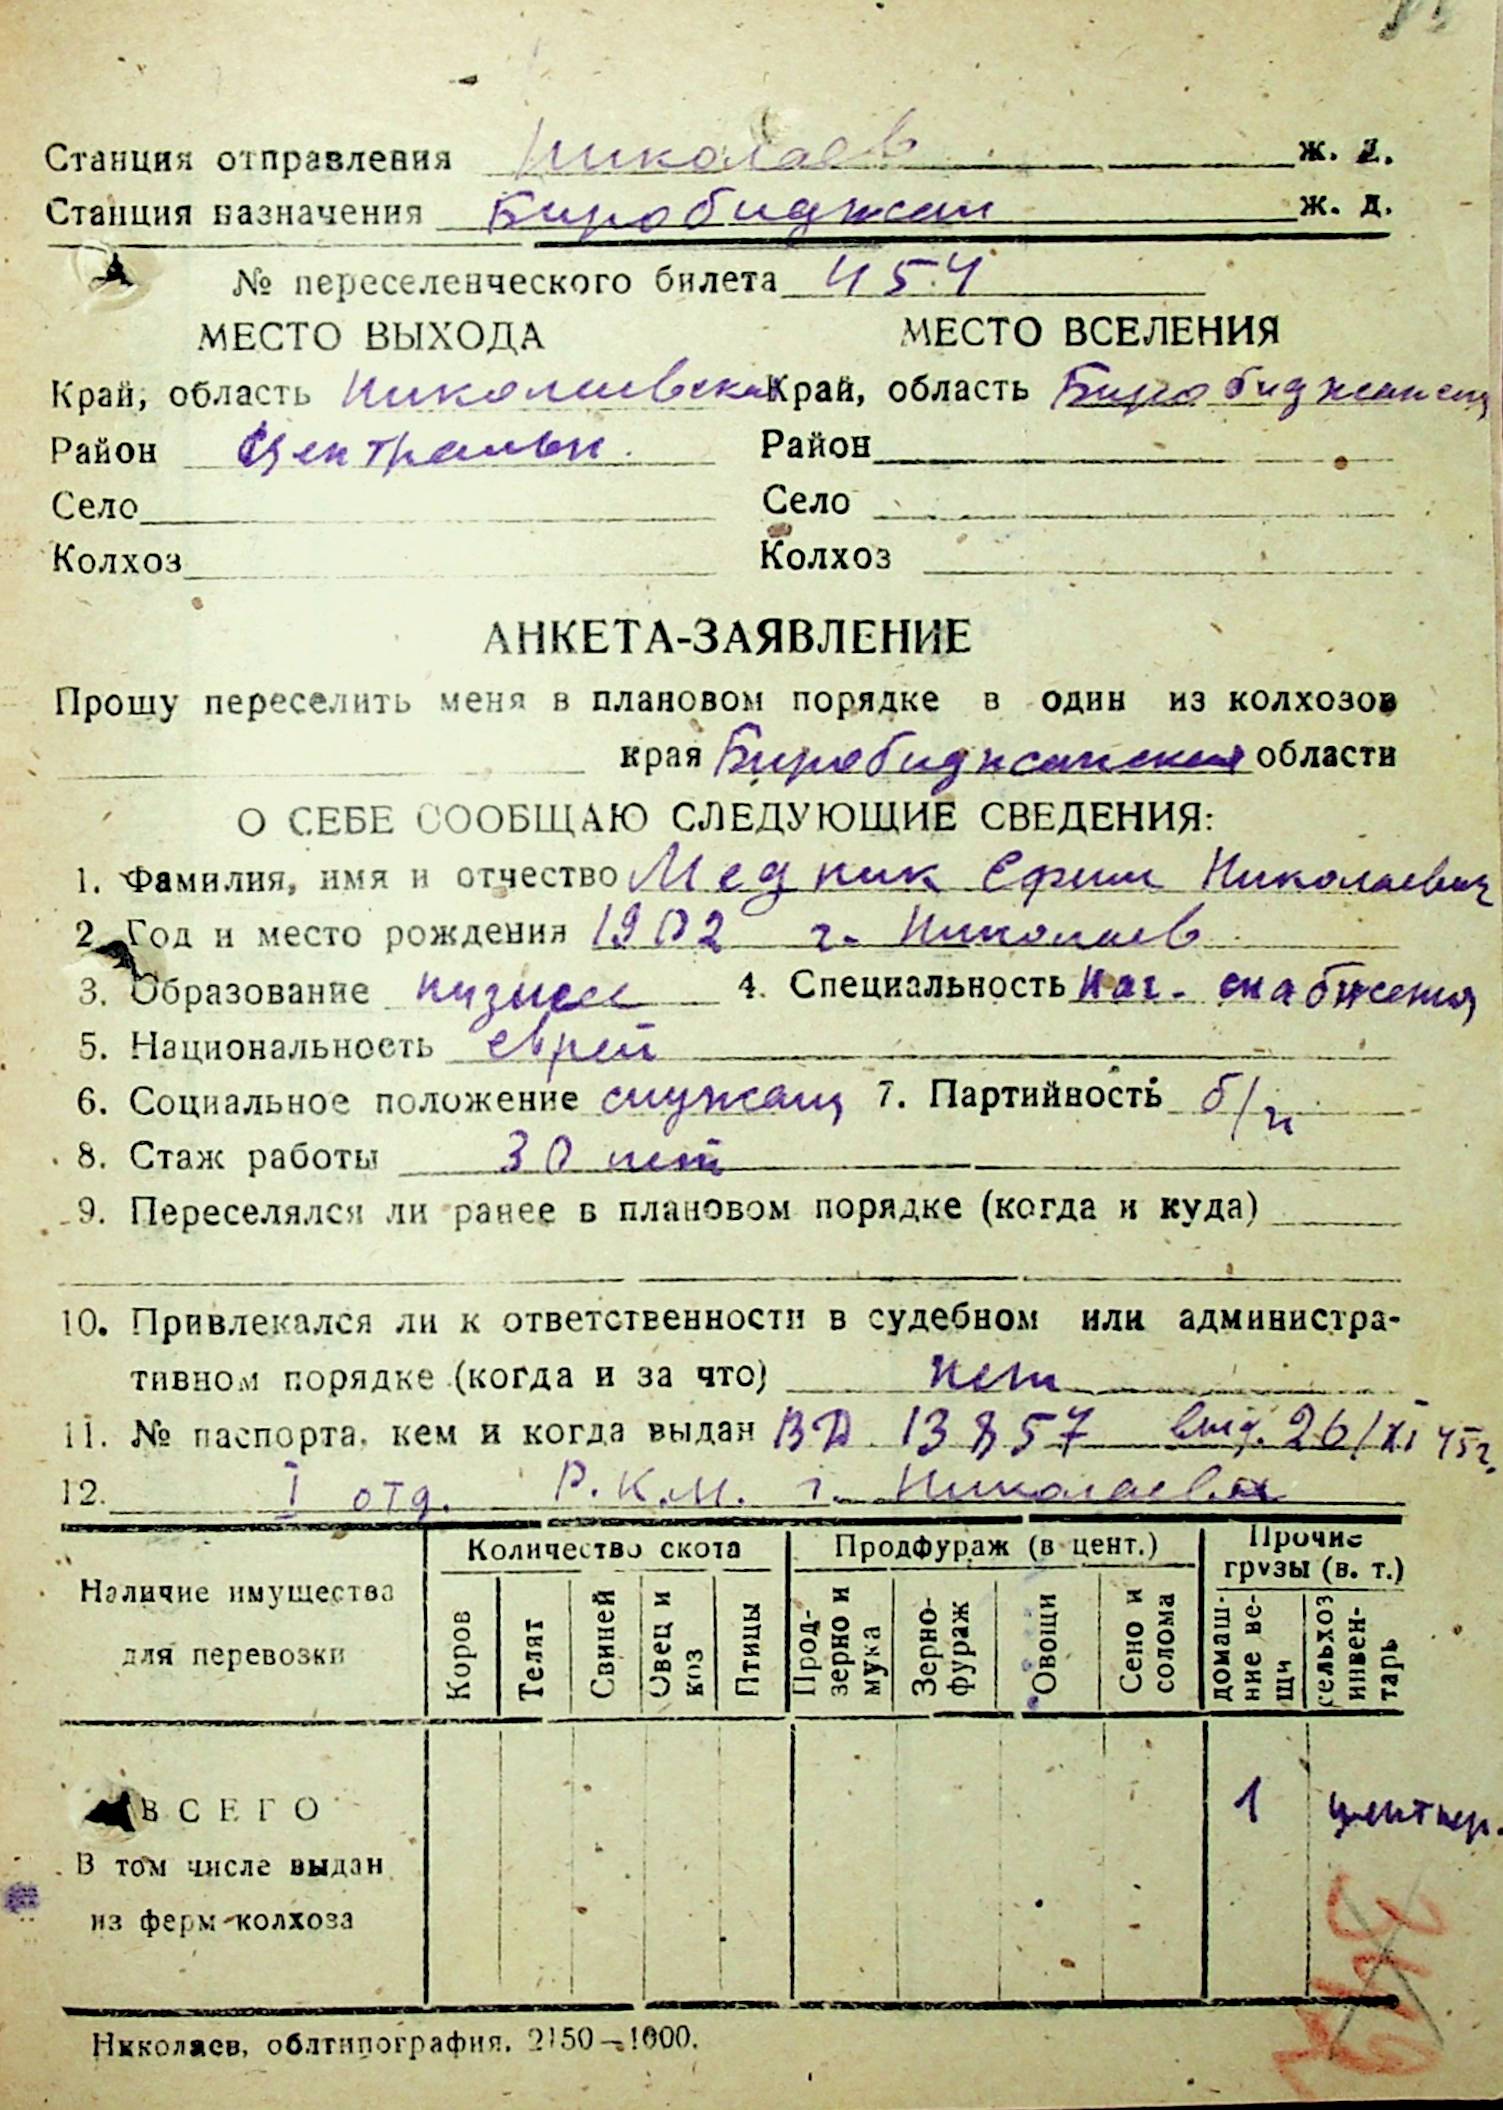 Станция отправления Николаев ж. д.
Станция назначения Биробиджан ж. д.
№ переселенческого билета 454
МЕСТО ВЫХОДА МЕСТО ВСЕЛЕНИЯ
Край, область Николаевская Край, область Биробиджанск
Район Центральн. Район
Село Село
Колхоз Колхоз
АНКЕТА-ЗАЯВЛЕНИЕ
Прошу переселить меня в плановом порядке в один из колхозов
края Биробиджанская области
О СЕБЕ СООБЩАЮ СЛЕДУЮЩИЕ СВЕДЕНИЯ:
1. Фамилия, имя и отчество Медник Ефим Николаевич
2. Год и место рождения 1902 г. Николаев
3. Образование низшее 4. Специальность снабжения
5. Национальность еврей
6. Социальное положение служащ 7. Партийность б/п
8. Стаж работы 30 лет
9. Переселялся ли ранее в плановом порядке (когда и куда)
10. Привлекался ли к ответственности в судебном или администра-
тивном порядке (когда и за что) нет
11. № паспорта, кем и когда выдан 13857 выд. 26/XI 45г.
12. I отд. Р.К.М. г. Николаева
Наличие имущества для перевозки
Количество скота Продфураж (в цент.) Прочие грузы (в. т.)
Коров Телят Свиней Овец и коз Птицы Прод-зерно и мука Зерно-фураж Овощи Сено и солома домаш-ние ве-щи сельхоз инвен-тарь
ВСЕГО 1 центнер.
В том числе выдан
из ферм колхоза
Николаев, облтипография. 2150—1000.